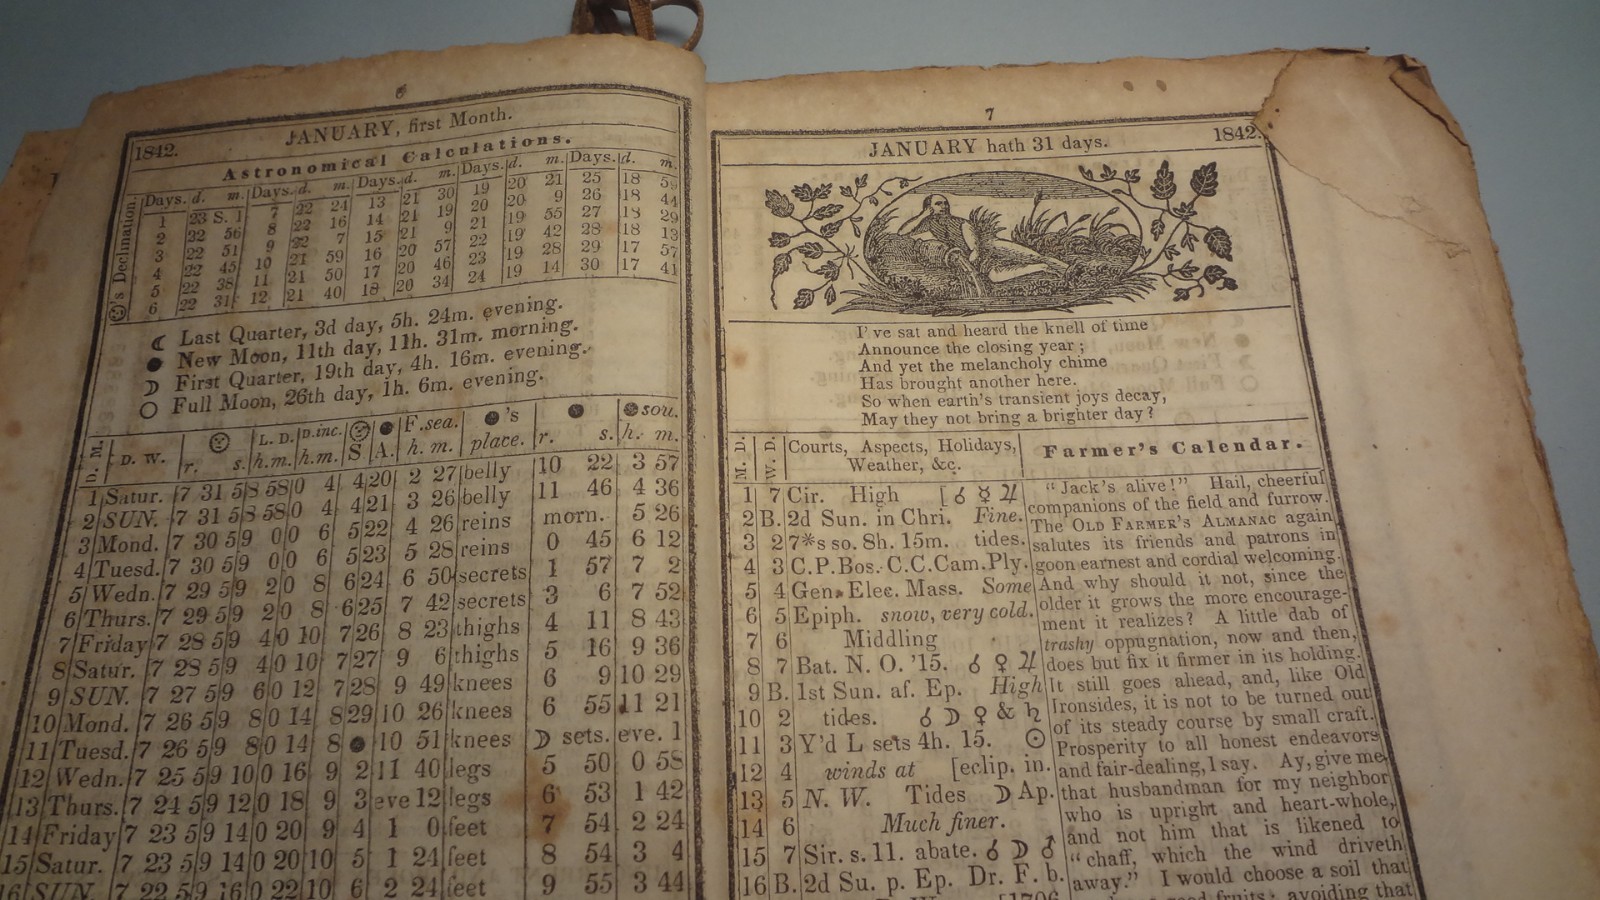 6
1842. JANUARY, first Month.
Astronomical Calculations.
☉'s Declination.
Days. d. m. Days. d. m. Days. d. m. Days. d. m. Days. d. m.
1 23 S. 1 7 22 24 13 21 30 19 20 21 25 18 59
2 22 56 8 22 16 14 21 19 20 20 9 26 18 44
3 22 51 9 22 7 15 21 9 21 19 55 27 18 29
4 22 45 10 21 59 16 20 57 22 19 42 28 18 13
5 22 38 11 21 50 17 20 46 23 19 28 29 17 57
6 22 31 12 21 40 18 20 34 24 19 14 30 17 41
☾ Last Quarter, 3d day, 5h. 24m. evening.
● New Moon, 11th day, 11h. 31m. morning.
☽ First Quarter, 19th day, 4h. 16m. evening.
○ Full Moon, 26th day, 1h. 6m. evening.
D. M. D. W. r. ☉ s. L. D. h. m. D. inc. h. m. ☉ S ● A. F. sea. h. m. ●'s place. ● r. s. ● sou. h. m.
1 Satur. 7 31 5 8 58 0 4 4 20 2 27 belly 10 22 3 57
2 SUN. 7 31 5 8 58 0 4 4 21 3 26 belly 11 46 4 36
3 Mond. 7 30 5 9 0 0 6 5 22 4 26 reins morn. 5 26
4 Tuesd. 7 30 5 9 0 0 6 5 23 5 28 reins 0 45 6 12
5 Wedn. 7 29 5 9 2 0 8 6 24 6 50 secrets 1 57 7 2
6 Thurs. 7 29 5 9 2 0 8 6 25 7 42 secrets 3 6 7 52
7 Friday 7 28 5 9 4 0 10 7 26 8 23 thighs 4 11 8 43
8 Satur. 7 28 5 9 4 0 10 7 27 9 6 thighs 5 16 9 36
9 SUN. 7 27 5 9 6 0 12 7 28 9 49 knees 6 9 10 29
10 Mond. 7 26 5 9 8 0 14 8 29 10 26 knees 6 55 11 21
11 Tuesd. 7 26 5 9 8 0 14 8 ● 10 51 knees ☽ sets. eve. 1
12 Wedn. 7 25 5 9 10 0 16 9 2 11 40 legs 5 50 0 58
13 Thurs. 7 24 5 9 12 0 18 9 3 eve 12 legs 6 53 1 42
14 Friday 7 23 5 9 14 0 20 9 4 1 0 feet 7 54 2 24
15 Satur. 7 23 5 9 14 0 20 10 5 1 24 feet 8 54 3 4
16 SUN. 7 22 5 9 16 0 22 10 6 2 24 feet 9 55 3 44
7
JANUARY hath 31 days. 1842.
I've sat and heard the knell of time
Announce the closing year;
And yet the melancholy chime
Has brought another here.
So when earth's transient joys decay,
May they not bring a brighter day?
M. D. W. D. Courts, Aspects, Holidays,
Weather, &c.
1 7 Cir. High [☌ ☿ ♃
2 B. 2d Sun. in Chri. Fine.
3 2 7*s so. 8h. 15m. tides.
4 3 C.P.Bos. C.C.Cam.Ply.
5 4 Gen. Elec. Mass. Some
6 5 Epiph. snow, very cold.
7 6 Middling
8 7 Bat. N. O. '15. ☌ ♀ ♃
9 B. 1st Sun. af. Ep. High
10 2 tides. ☌ ☽ ♀ & ♄
11 3 Y'd L sets 4h. 15. ☉
12 4 winds at [eclip. in.
13 5 N. W. Tides ☽ Ap.
14 6 Much finer.
15 7 Sir. s. 11. abate. ☌ ☽ ♂
16 B. 2d Su. p. Ep. Dr. F. b.
[1706
Farmer's Calendar.
"Jack's alive!" Hail, cheerful
companions of the field and furrow.
The OLD FARMER'S ALMANAC again
salutes its friends and patrons in
goon earnest and cordial welcoming.
And why should it not, since the
older it grows the more encourage-
ment it realizes? A little dab of
trashy oppugnation, now and then,
does but fix it firmer in its holding.
It still goes ahead, and, like Old
Ironsides, it is not to be turned out
of its steady course by small craft.
Prosperity to all honest endeavors
and fair-dealing, I say. Ay, give me
that husbandman for my neighbor
who is upright and heart-whole,
and not him that is likened to
"chaff, which the wind driveth
away." I would choose a soil that
good fruits; avoiding that